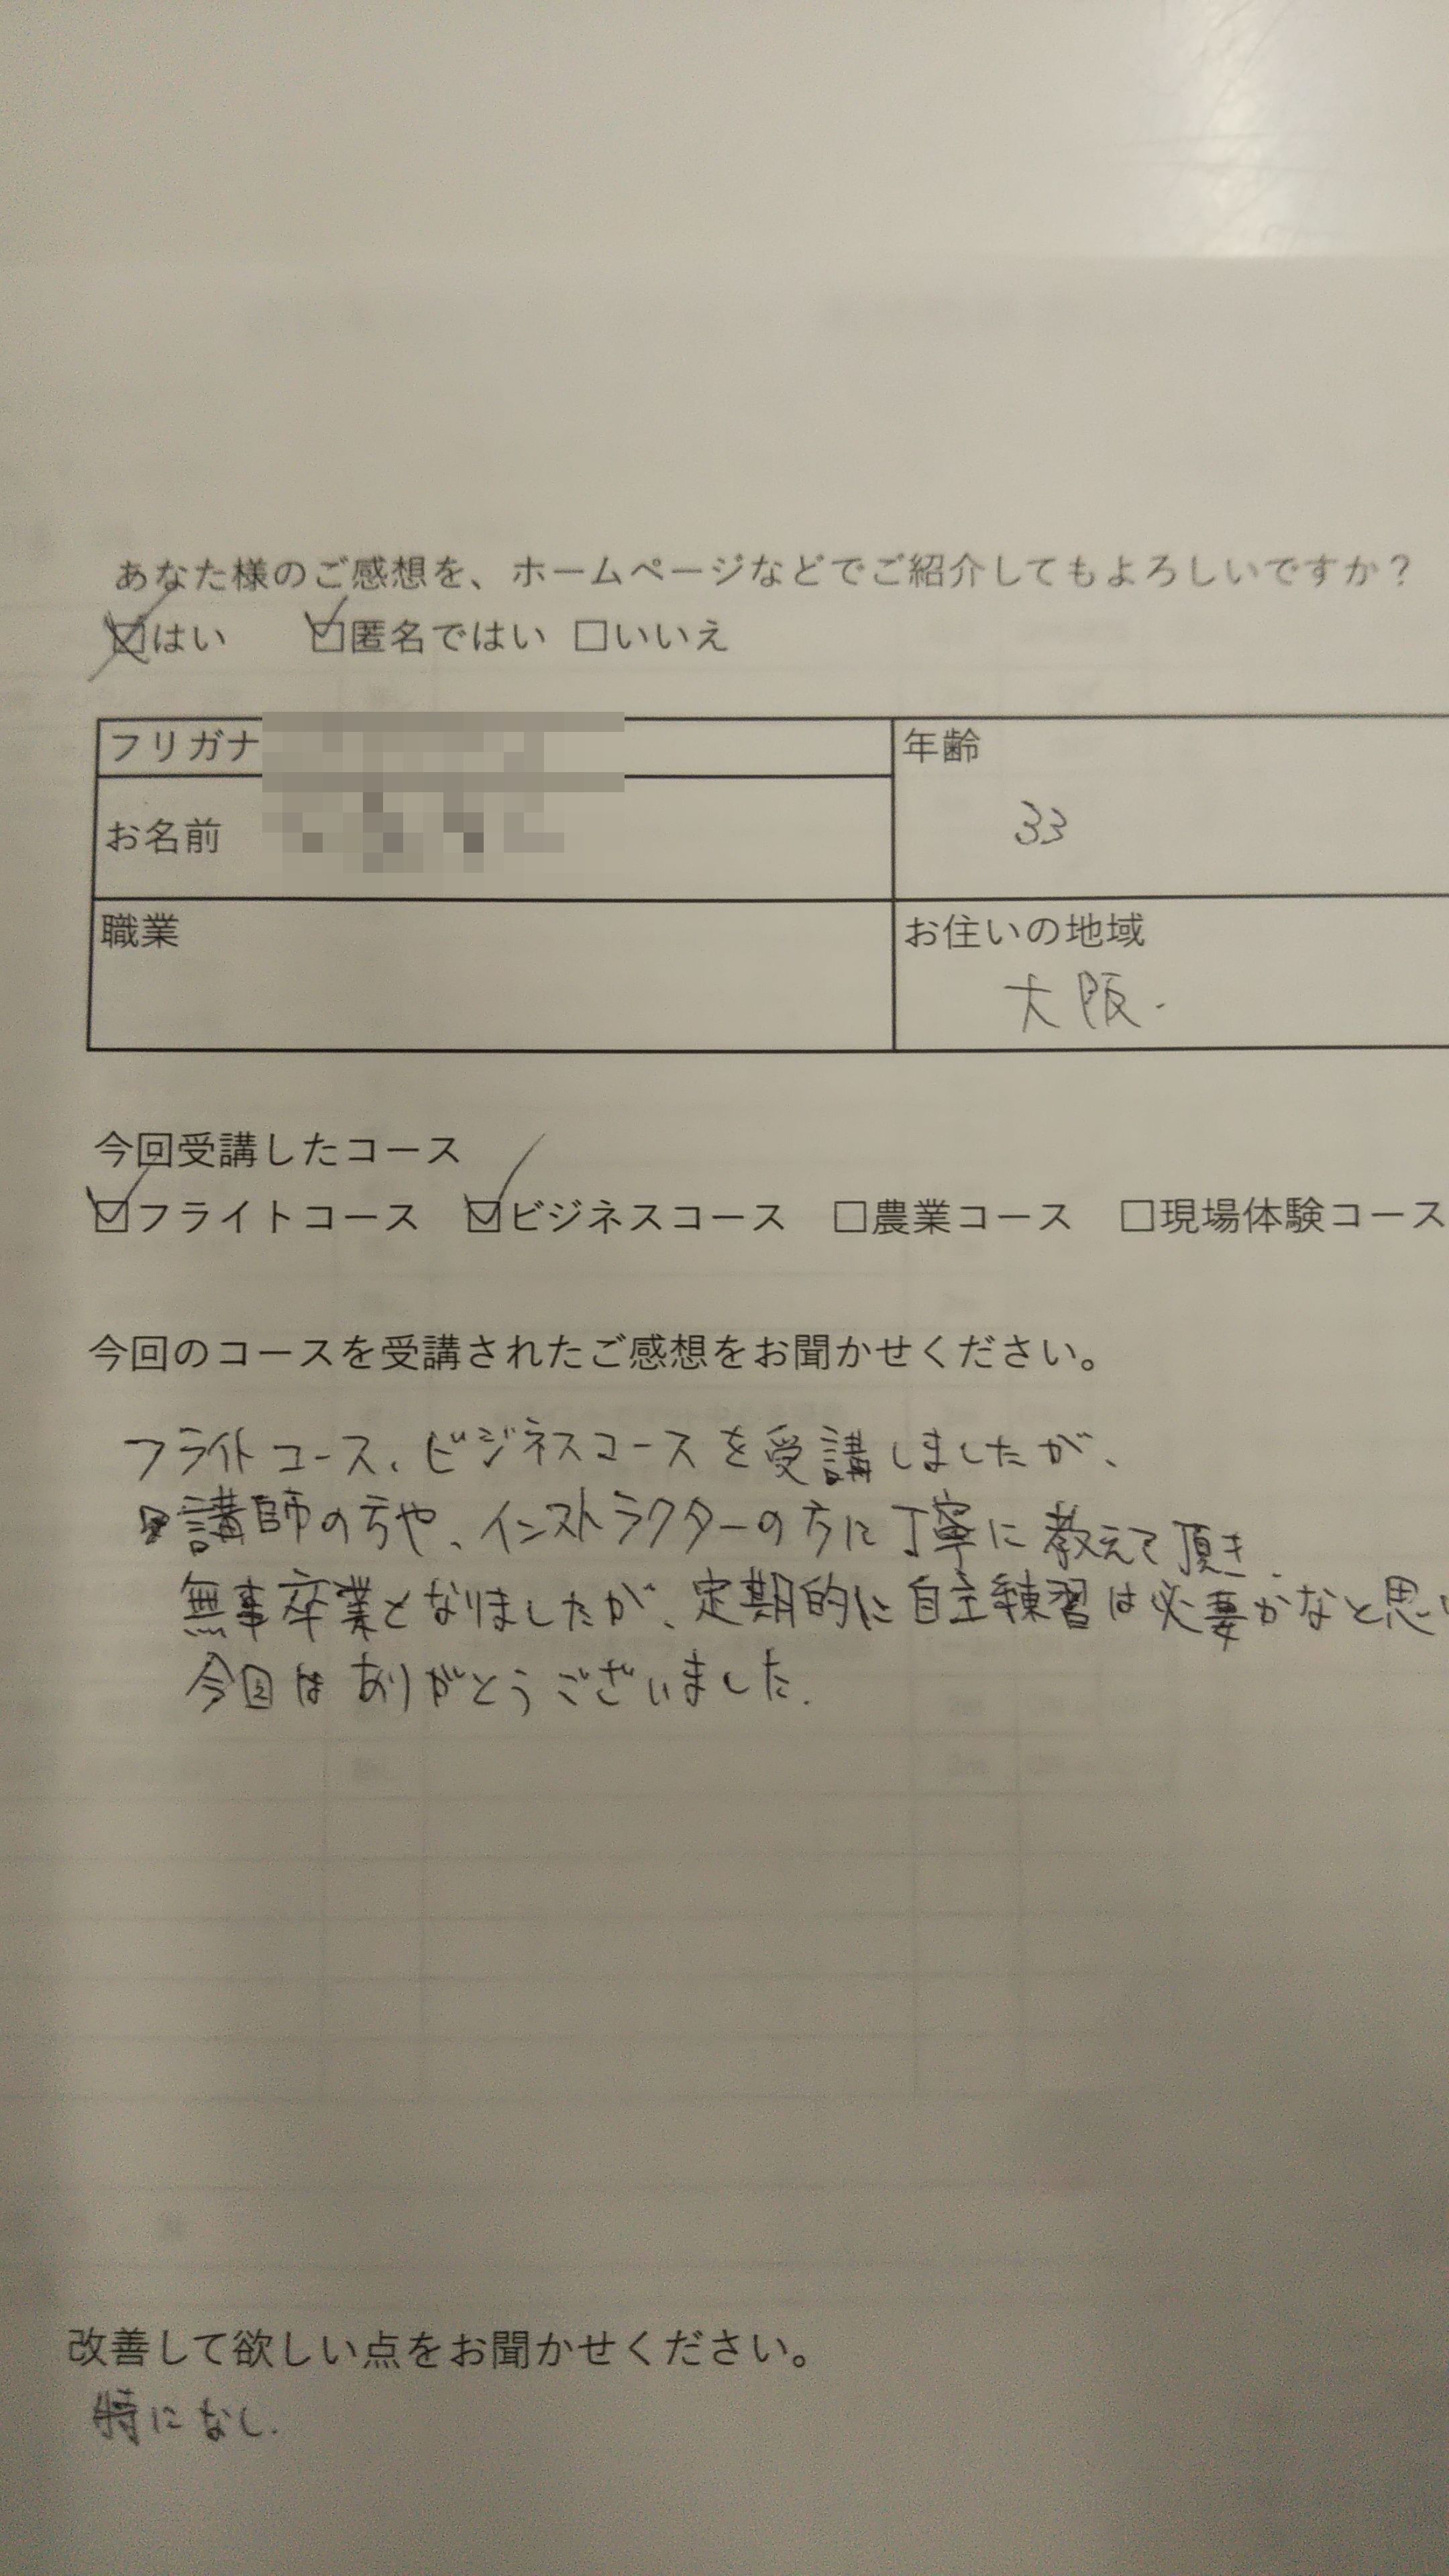 あなた様のご感想を、ホームページなどでご紹介してもよろしいですか？
☑はい ☑匿名ではい □いいえ
フリガナ
年齢
お名前
33
職業
お住いの地域
大阪.
今回受講したコース
☑フライトコース ☑ビジネスコース □農業コース □現場体験コース
今回のコースを受講されたご感想をお聞かせください。
フライトコース、ビジネスコースを受講しましたが、
講師の方や、インストラクターの方に丁寧に教えて頂き、
無事卒業となりましたが、定期的に自主練習は必要かなと思い
今回はありがとうございました.
改善して欲しい点をお聞かせください。
特になし.